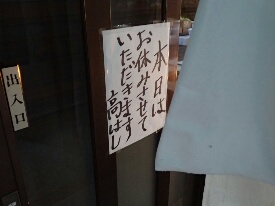 本日は
お休みさせて
いただきます
高はし
出入口